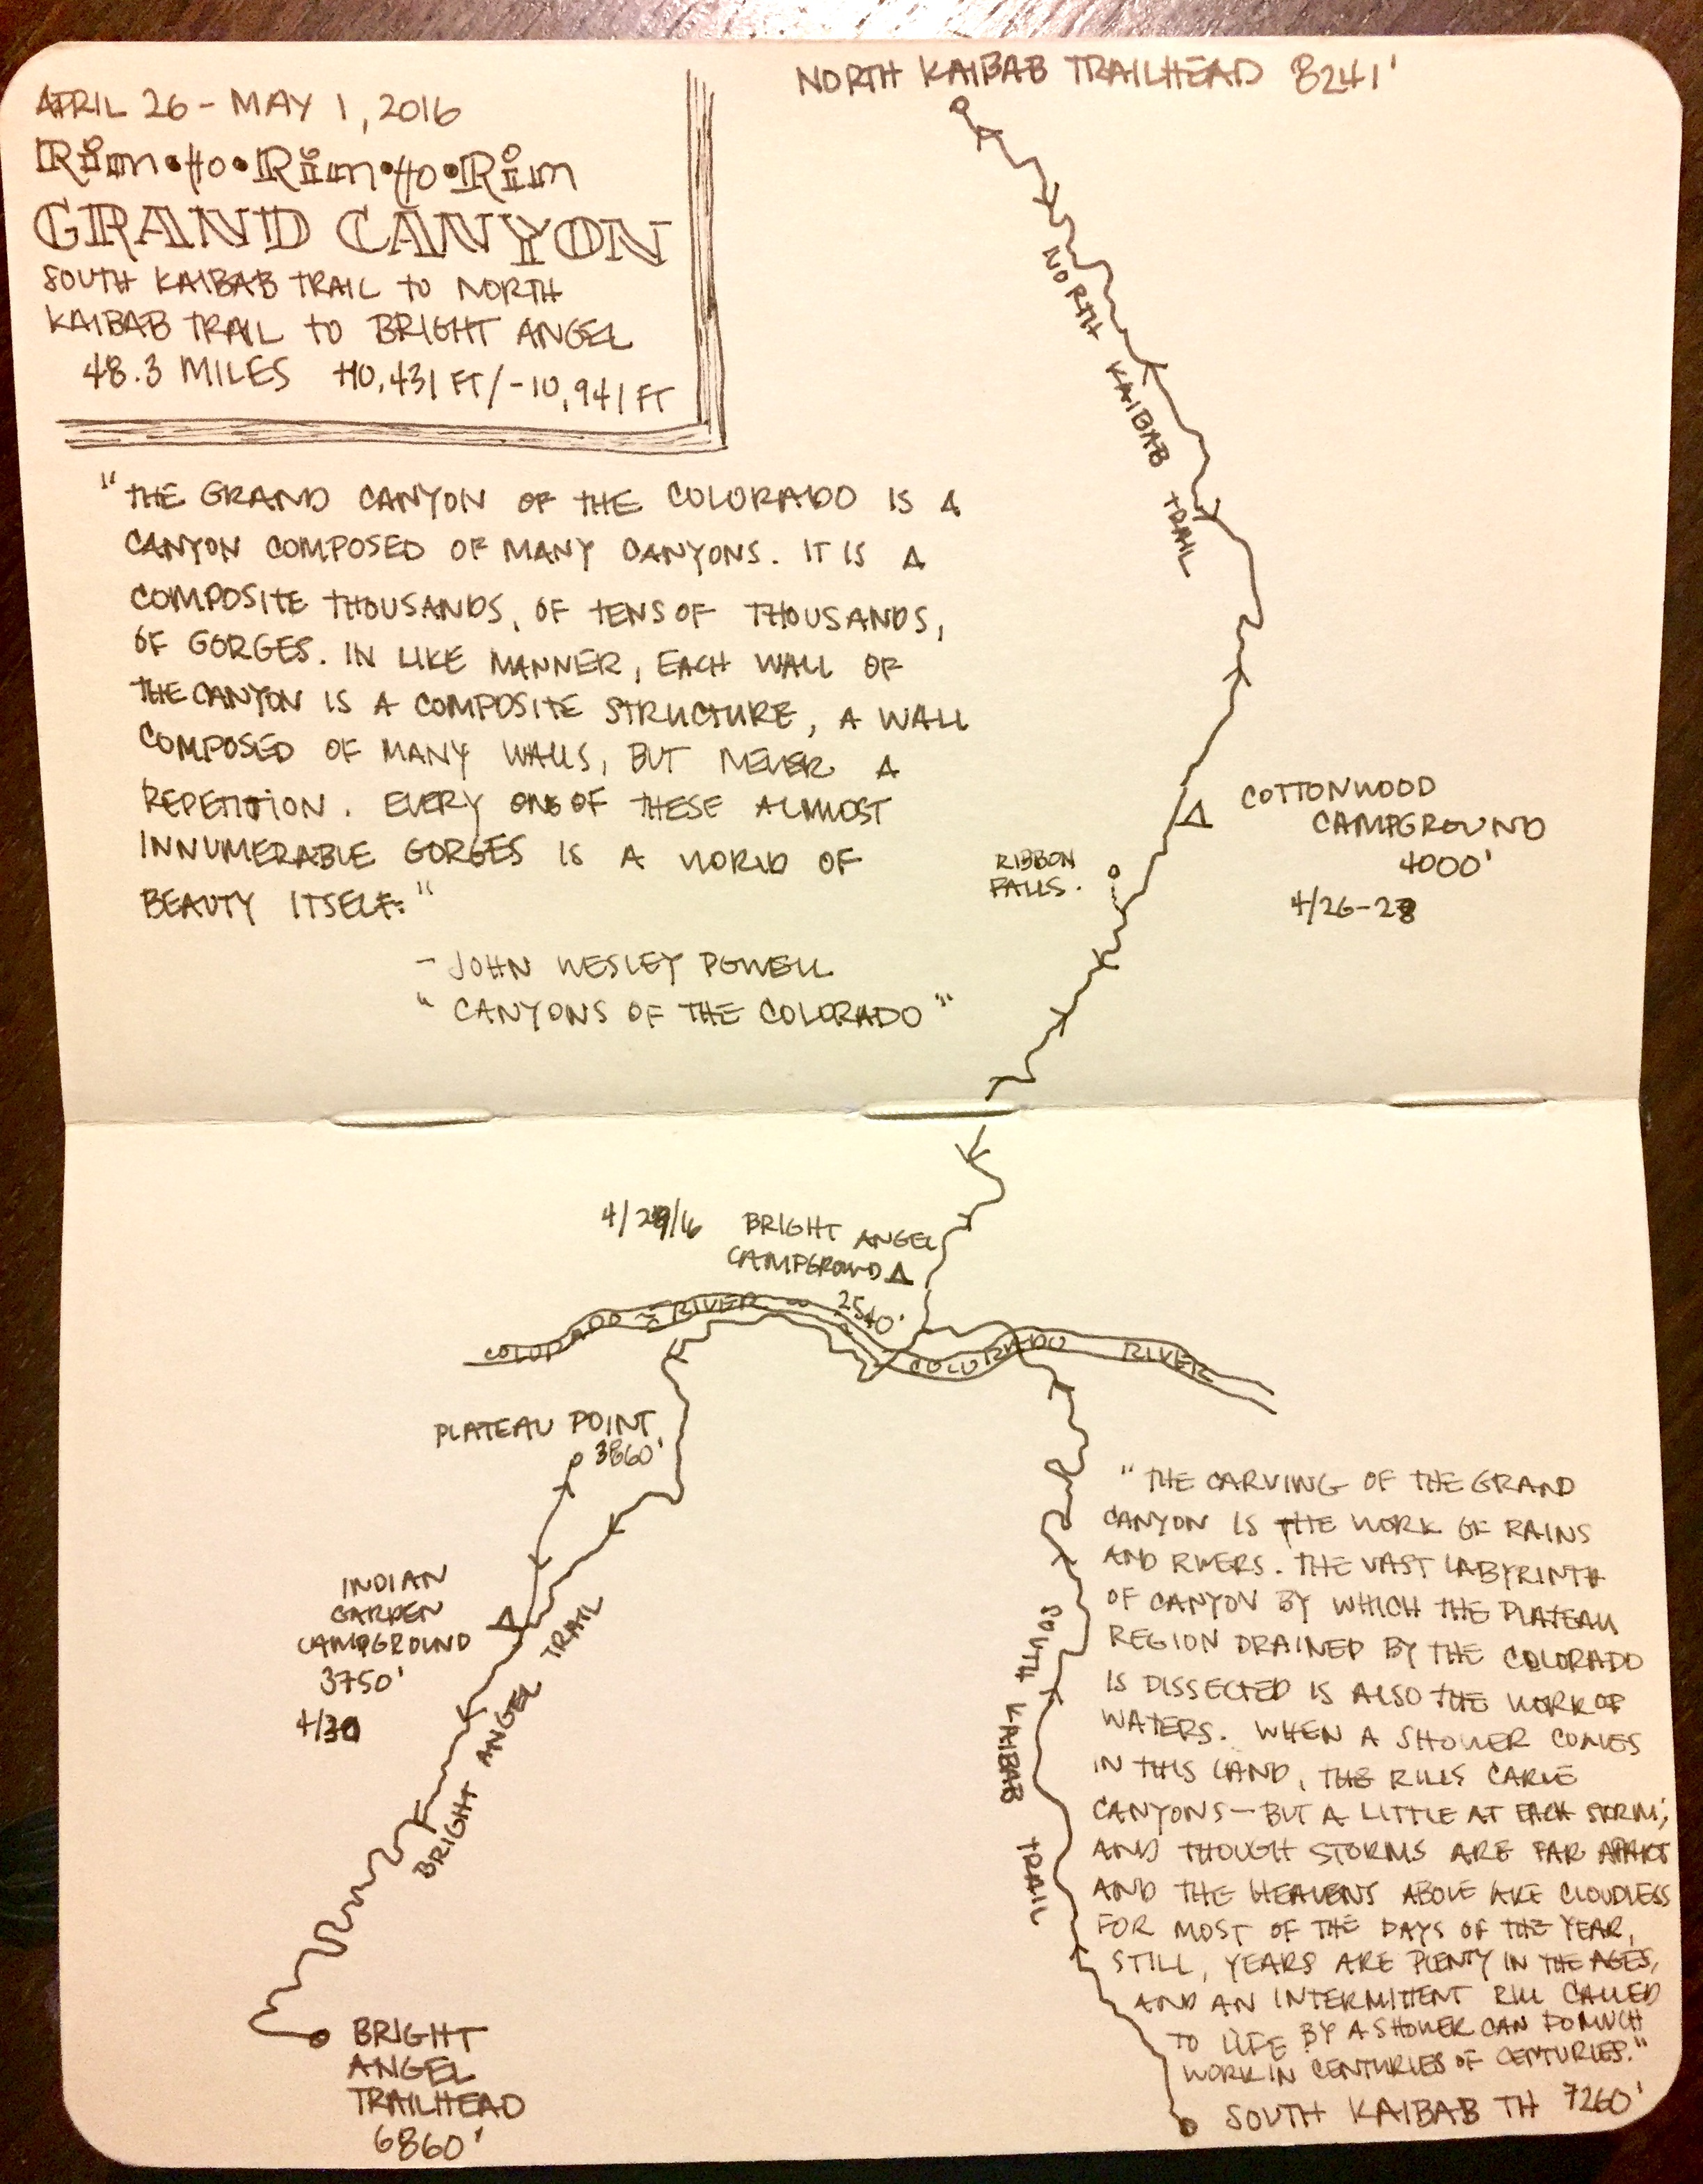 APRIL 26 - MAY 1, 2016
Rim•to•Rim•to•Rim
GRAND CANYON
SOUTH KAIBAB TRAIL TO NORTH
KAIBAB TRAIL TO BRIGHT ANGEL
48.3 MILES +10,431 FT/-10,941 FT
"THE GRAND CANYON OF THE COLORADO IS A
CANYON COMPOSED OF MANY CANYONS. IT IS A
COMPOSITE THOUSANDS, OF TENS OF THOUSANDS,
OF GORGES. IN LIKE MANNER, EACH WALL OF
THE CANYON IS A COMPOSITE STRUCTURE, A WALL
COMPOSED OF MANY WALLS, BUT NEVER A
REPETITION. EVERY ONE OF THESE ALMOST
INNUMERABLE GORGES IS A WORLD OF
BEAUTY ITSELF."
- JOHN WESLEY POWELL
"CANYONS OF THE COLORADO"
NORTH KAIBAB TRAILHEAD 8241'
NORTH KAIBAB TRAIL
COTTONWOOD
CAMPGROUND
4000'
4/26-28
RIBBON
FALLS.
4/29/16 BRIGHT ANGEL
CAMPGROUND
2540'
COLORADO RIVER
COLORADO RIVER
PLATEAU POINT
3860'
INDIAN
GARDEN
CAMPGROUND
3750'
4/30
BRIGHT ANGEL TRAIL
BRIGHT
ANGEL
TRAILHEAD
6860'
SOUTH KAIBAB TRAIL
"THE CARVING OF THE GRAND
CANYON IS THE WORK OF RAINS
AND RIVERS. THE VAST LABYRINTH
OF CANYON BY WHICH THE PLATEAU
REGION DRAINED BY THE COLORADO
IS DISSECTED IS ALSO THE WORK OF
WATERS. WHEN A SHOWER COMES
IN THIS LAND, THE RILLS CARVE
CANYONS - BUT A LITTLE AT EACH STORM;
AND THOUGH STORMS ARE FAR APART
AND THE HEAVENS ABOVE ARE CLOUDLESS
FOR MOST OF THE DAYS OF THE YEAR,
STILL, YEARS ARE PLENTY IN THE AGES,
AND AN INTERMITTENT RILL CALLED
TO LIFE BY A SHOWER CAN DO MUCH
WORK IN CENTURIES OF CENTURIES."
SOUTH KAIBAB TH 7260'